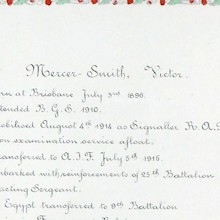 Mercer-Smith, Victor.
rn at Brisbane July 3rd 1896.
tended B.G.S. 1910.
obilised August 4th 1914 as Signaller R.A.
on examination service afloat.
ransferred to A.I.F. July 5th 1915.
mbarked with reinforcements of 25th Battalion
asting Sergeant.
Egypt transferred to 9th Battalion